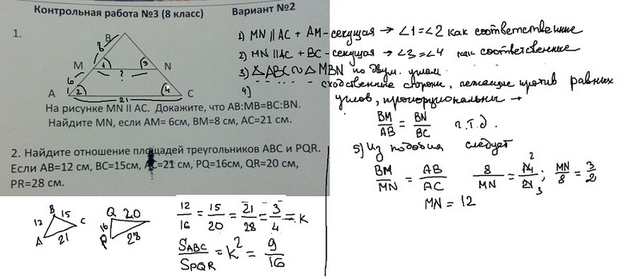 Контрольная работа №3 (8 класс) Вариант №2
1.
B
8
M N
3
?
6
A 1 2 4 C
21
На рисунке MN || AC. Докажите, что AB:MB=BC:BN.
Найдите MN, если AM= 6см, BM=8 см, AC=21 см.
2. Найдите отношение площадей треугольников ABC и PQR.
Если AB=12 см, BC=15см, AC=21 см, PQ=16см, QR=20 см,
PR=28 см.
B 15
12
A 21 C
Q 20
16
P 28
12/16 = 15/20 = 21/28 = 3/4 = k
S_ABC/S_PQR = k² = 9/16
1) MN || AC + AM-секущая → ∠1=∠2 как соответственные
2) MN || AC + BC-секущая → ∠3=∠4 как соответственные
3) △ABC ∾ △MBN по двум углам
4) стороны, лежащие против равных
углов, пропорциональны →
BM/AB = BN/BC ч.т.д.
5) Из подобия следует
BM/MN = AB/AC 8/MN = 14 2/21 3; MN/8 = 3/2
MN = 12